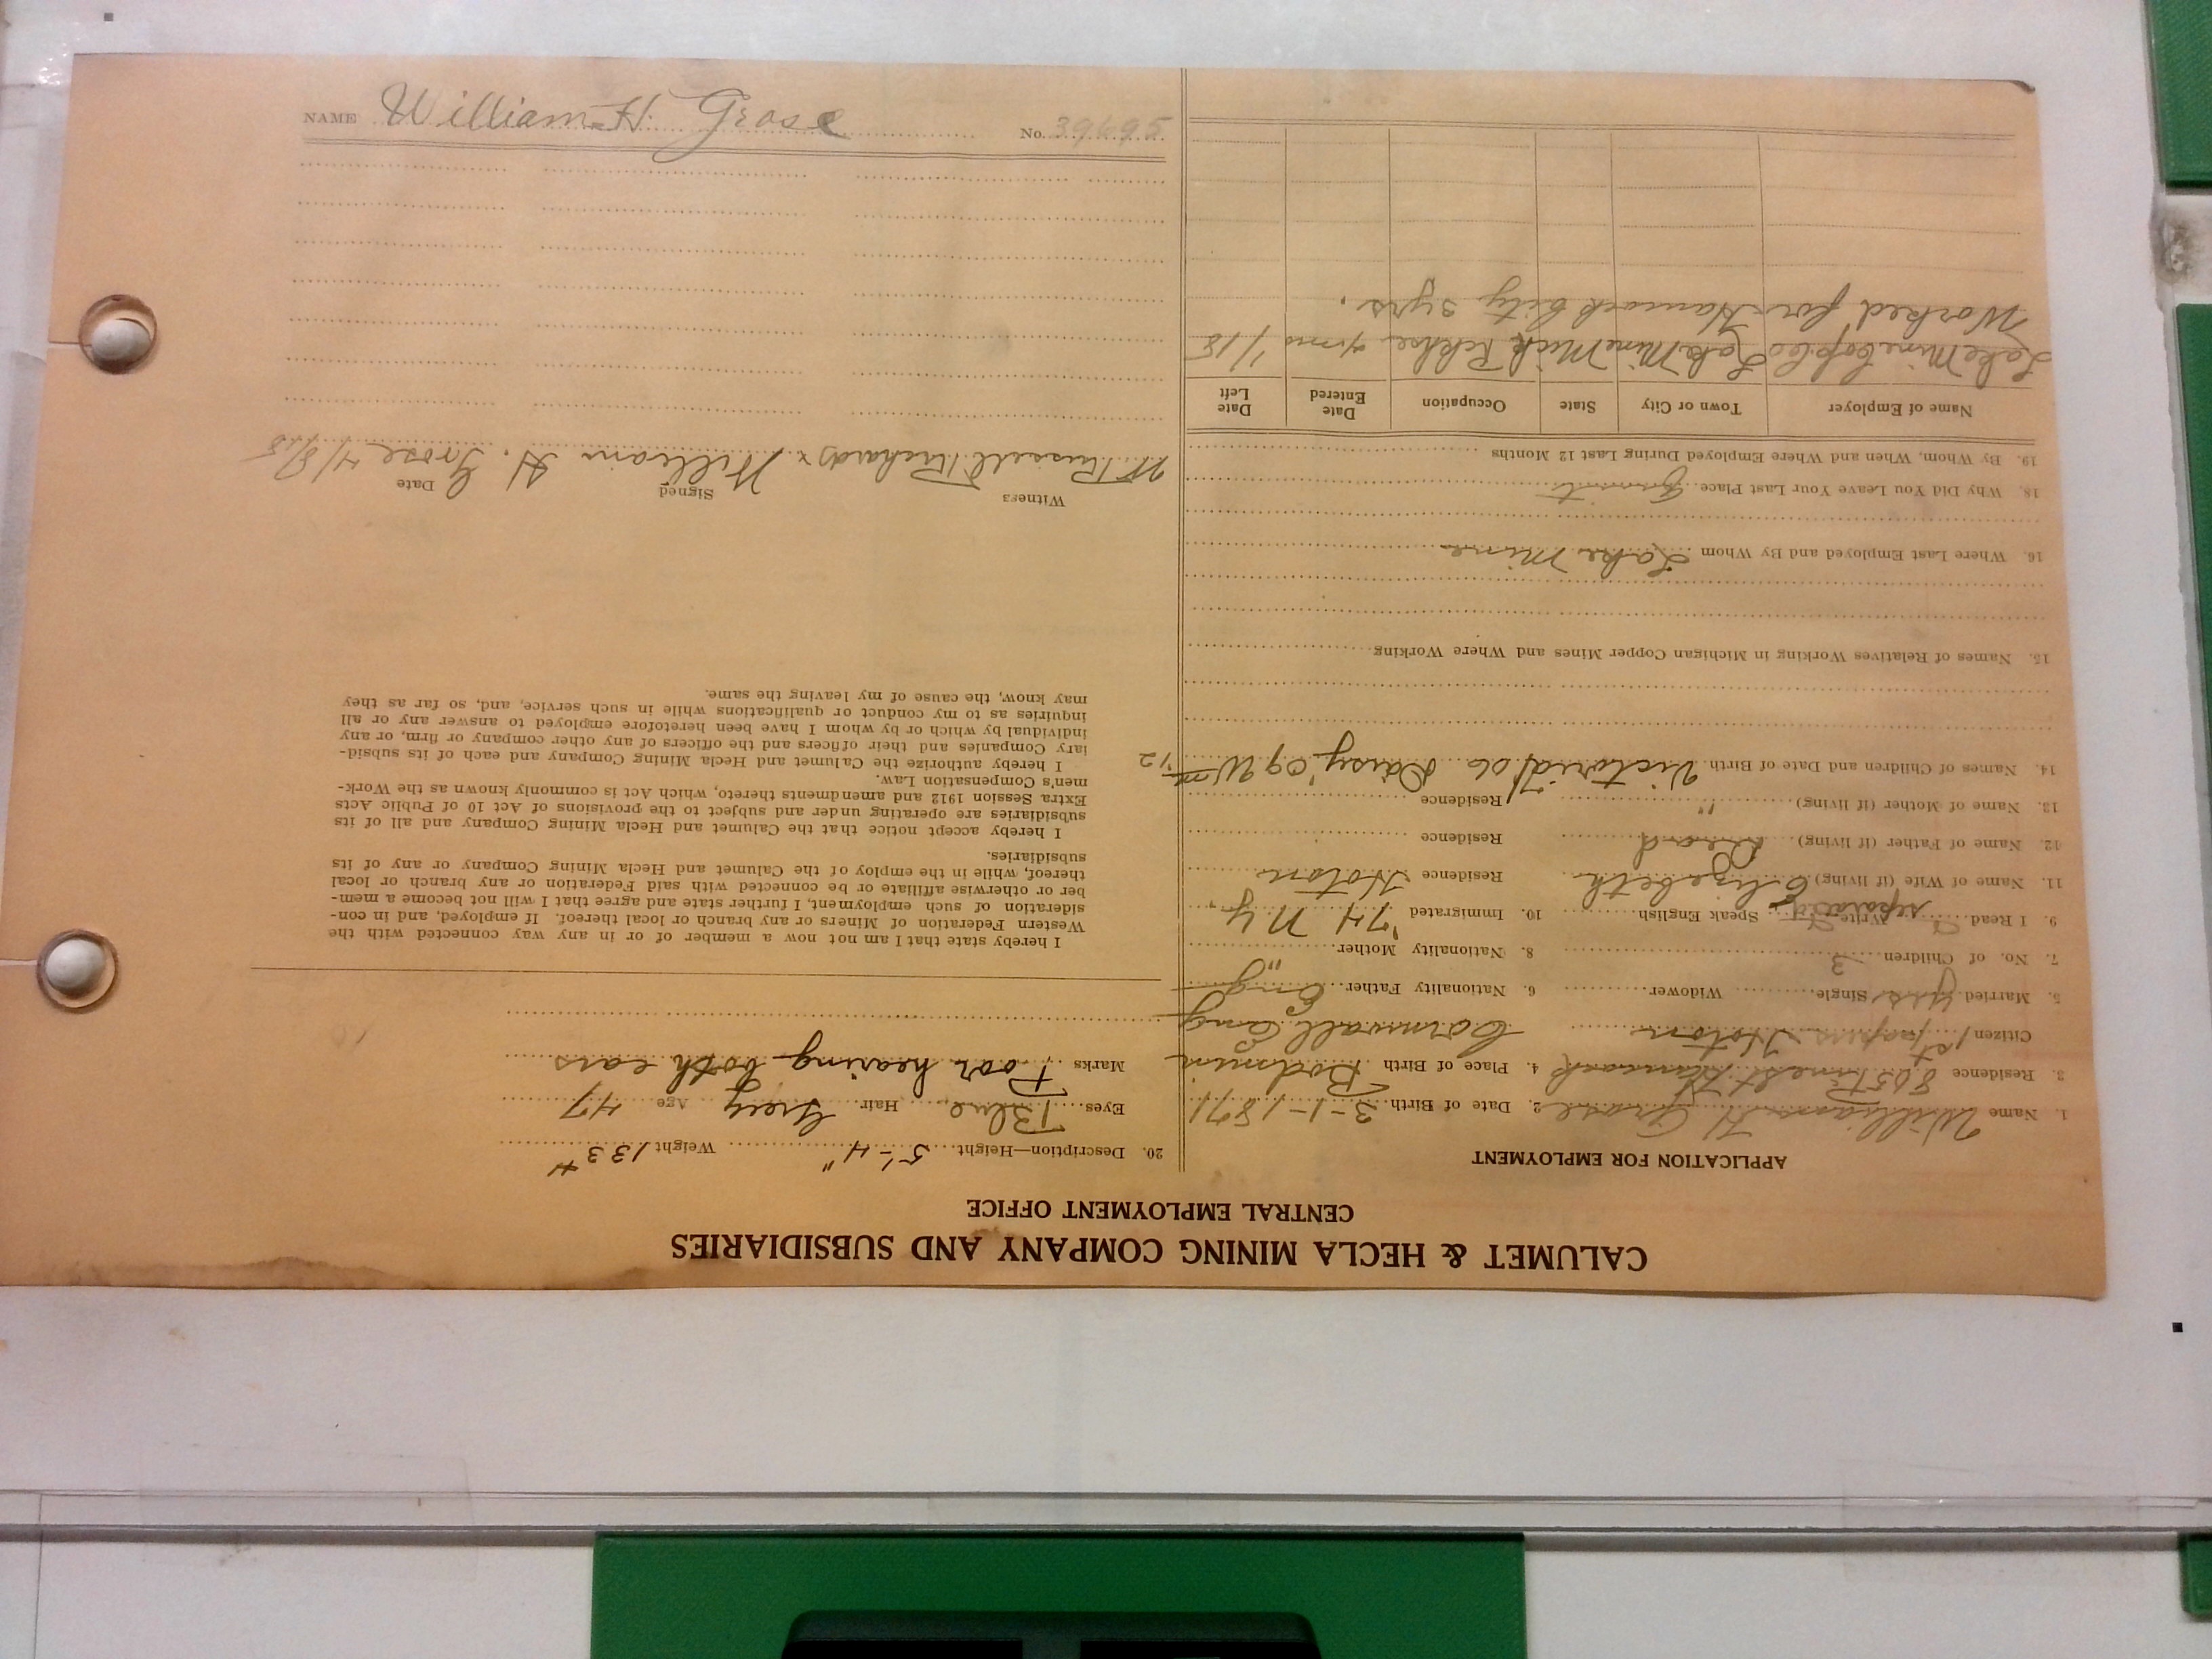 NAME William H. Grose No. 39695
CALUMET & HECLA MINING COMPANY AND SUBSIDIARIES
CENTRAL EMPLOYMENT OFFICE
APPLICATION FOR EMPLOYMENT
1. Name William H Grose 2. Date of Birth 3-1-1871
3. Residence 805 Hancock 4. Place of Birth Bodmin
Citizen 1st papers Hoton Cornwall Eng
5. Married yes Single Widower 6. Nationality Father Eng
7. No. of Children 3 8. Nationality Mother "
9. I Read Write Speak English 10. Immigrated '74 N.Y.
separated
11. Name of Wife (if living) Elizabeth Residence Hoton
12. Name of Father (if living) Dead Residence
13. Name of Mother (if living) " Residence
14. Names of Children and Date of Birth Victoria '06 Daisy '09 Wm '12
15. Names of Relatives Working in Michigan Copper Mines and Where Working
16. Where Last Employed and By Whom Lake Mine
18. Why Did You Leave Your Last Place
19. By Whom, When and Where Employed During Last 12 Months
Name of Employer Town or City State Occupation Date Entered Date Left
Lake Mine Cop Co Lake Mine Mich 1/18
Worked for Hancock City 3 yrs.
20. Description—Height 5'-4" Weight 133#
Eyes Blue Hair Grey Age 47
Marks Poor hearing both ears
I hereby state that I am not now a member of or in any way connected with the
Western Federation of Miners or any branch or local thereof. If employed, and in con-
sideration of such employment, I further state and agree that I will not become a mem-
ber or otherwise affiliate or be connected with said Federation or any branch or local
thereof, while in the employ of the Calumet and Hecla Mining Company or any of its
subsidiaries.
I hereby accept notice that the Calumet and Hecla Mining Company and all of its
subsidiaries are operating under and subject to the provisions of Act 10 of Public Acts
Extra Session 1912 and amendments thereto, which Act is commonly known as the Work-
men's Compensation Law.
I hereby authorize the Calumet and Hecla Mining Company and each of its subsid-
iary Companies and their officers and the officers of any other company or firm, or any
individual by which or by whom I have been heretofore employed to answer any or all
inquiries as to my conduct or qualifications while in such service, and, so far as they
may know, the cause of my leaving the same.
Witness Signed Date
W Russell Richards x William H. Grose 4/8/18